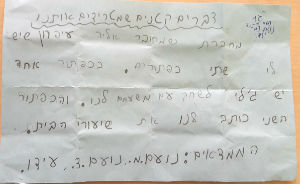 דברים קטנים שמטרידים אותנו
מחברת שמחובר אליה עיפרון שיש
לו שתי כפתורים. בכפתור אחד
יש לשחק עם משעמם לנו. והכפתור
השני כותב לנו את שיעורי הבית.
הממציאים: נועם.מ. נועם.צ. עידו.